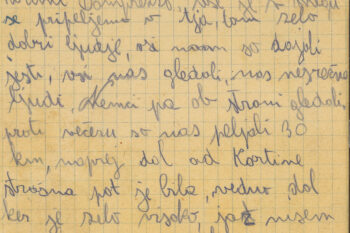 se pripeljemo v tja, tam zelo
dobri ljudje, vsi nam so dajali
jesti, vsi nas gledali, nas nesrečne
ljudi, Nemci pa ob strani gledali,
proti večeru so nas peljali 30
km, naprej dol od Kortine
strašna pot je bila, vedno dol
ker je zelo visoko, jaz nisem